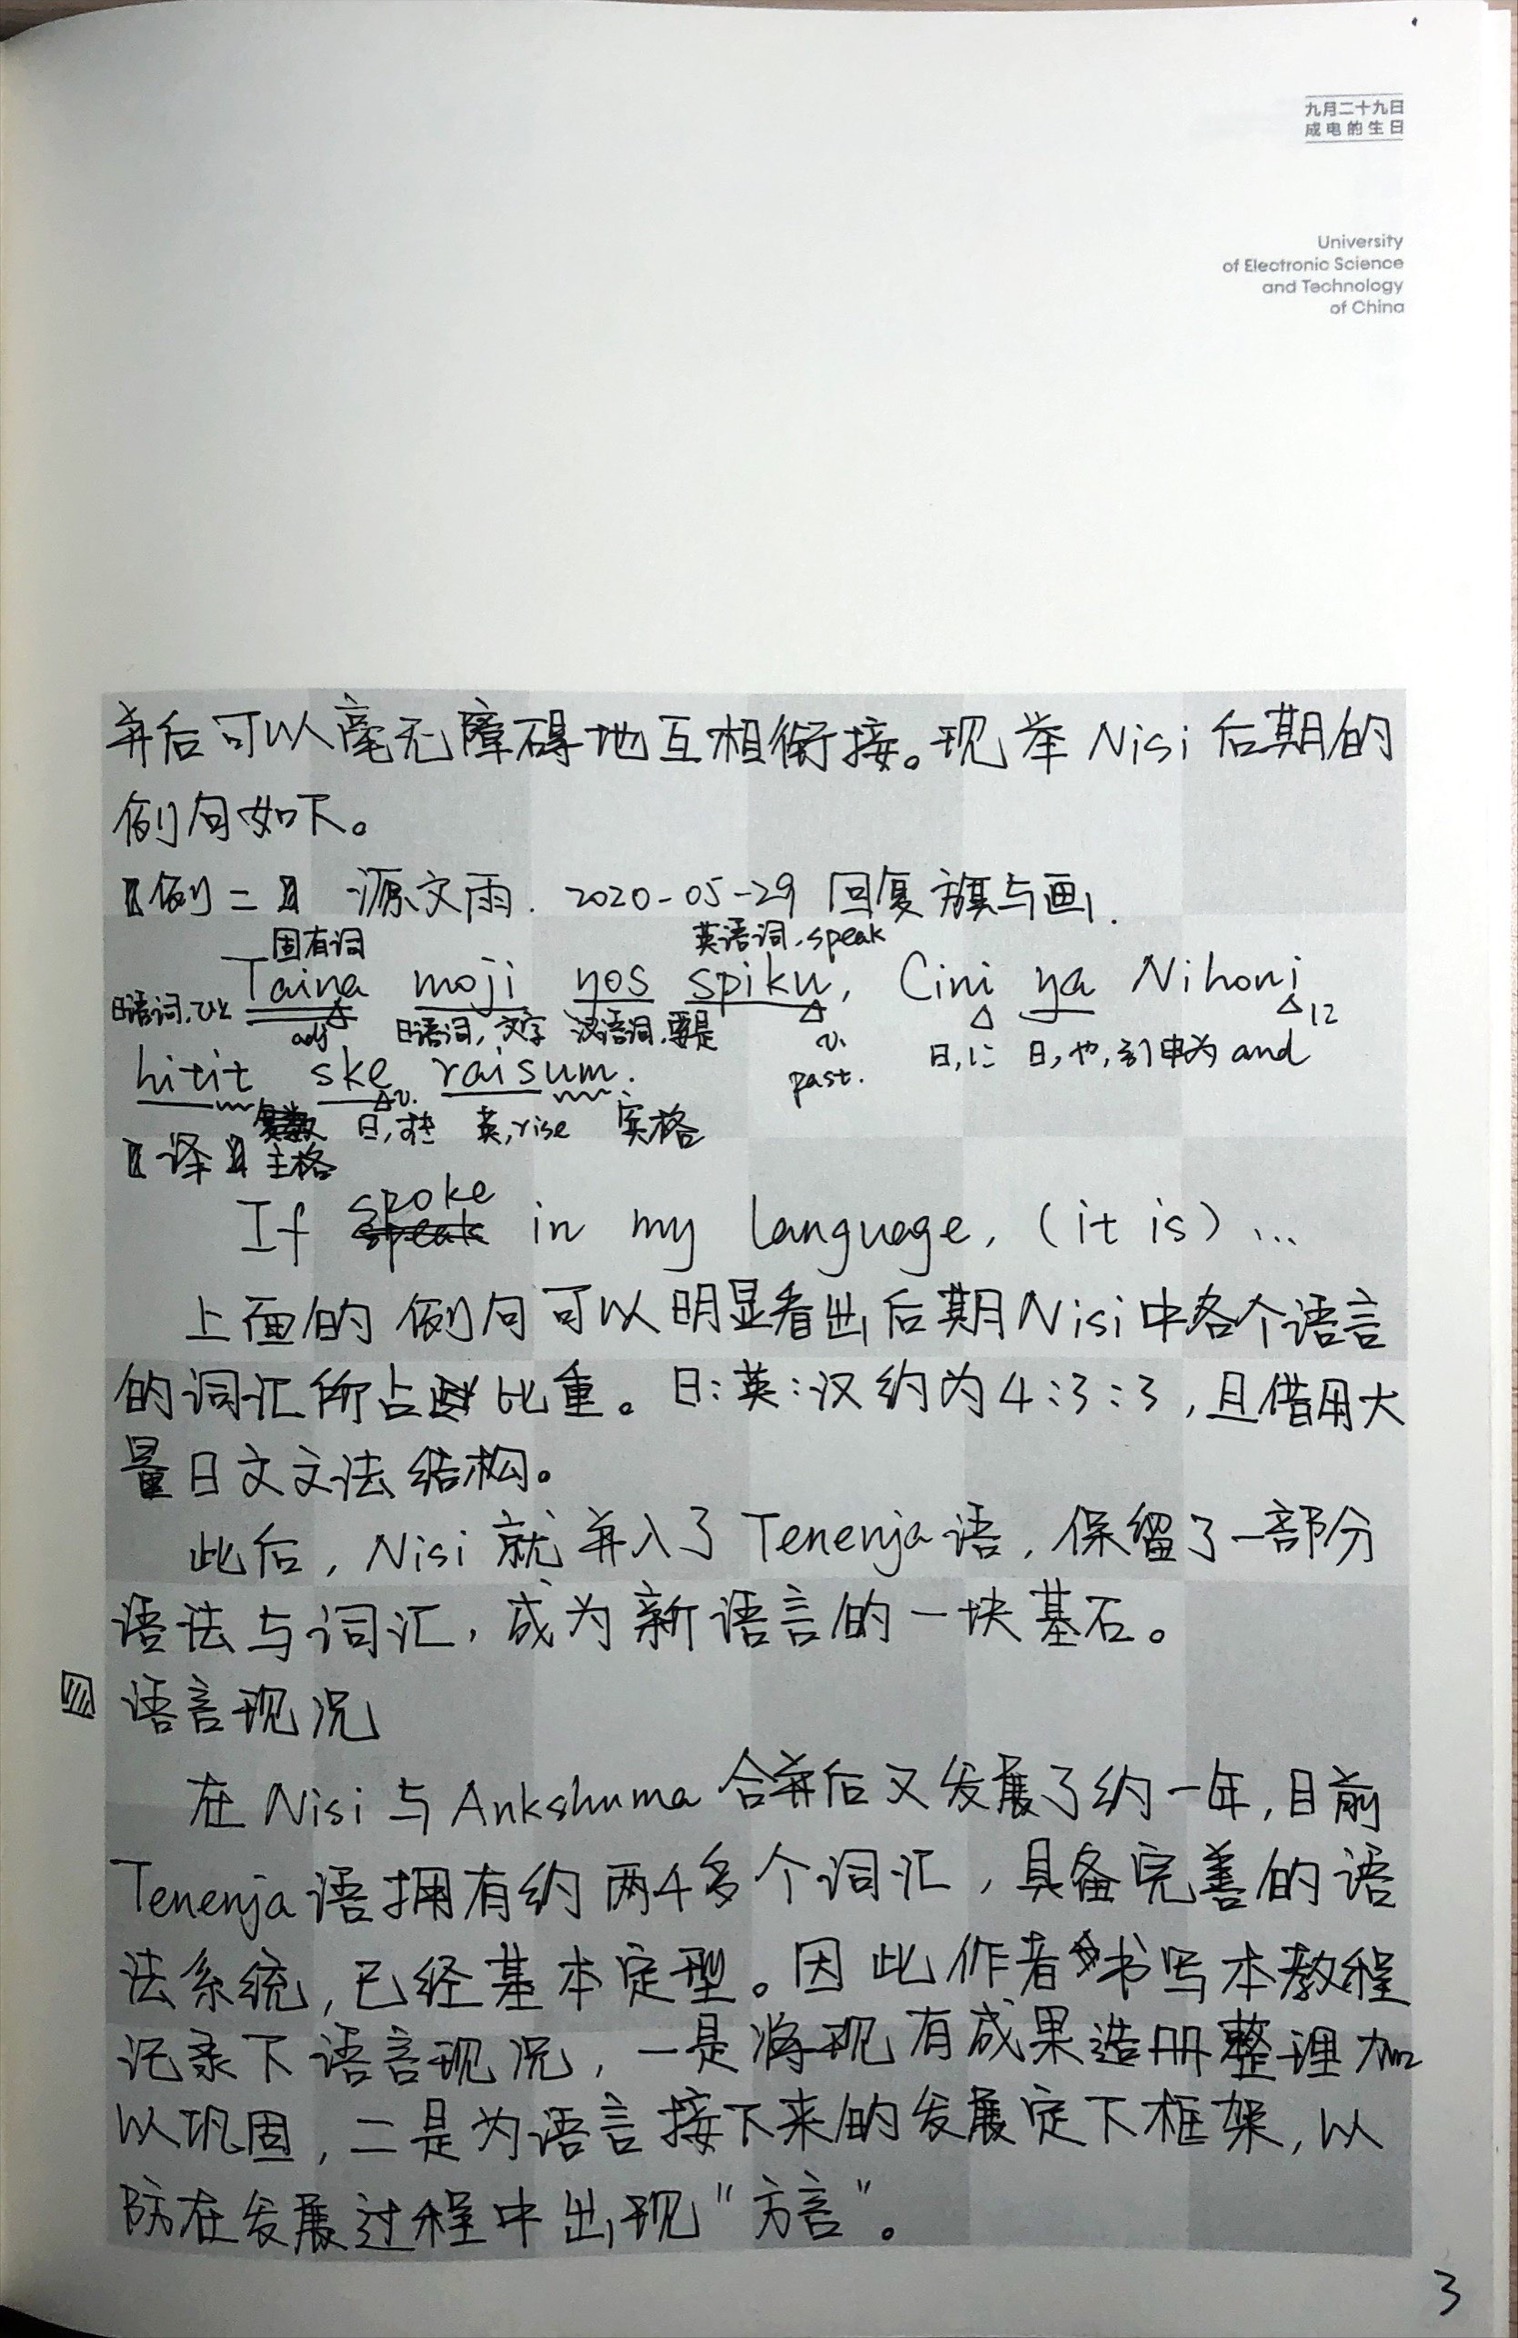 九月二十九日
成电的生日
University
of Electronic Science
and Technology
of China
并后可以毫无障碍地互相衔接。现举 Nisi 后期的
例句如下。
【例二】 源文雨. 2020-05-29 回复旗与画.
固有词 英语词, speak
Taina moji yos spiku, Cini ya Nihoni
日语词, ひと adj 日语词, 文字 汉语词, 要是 v. past. 日, に 日, や, 引申为 and に
hitit ske raisum.
主格 v. 日, すき 英, rise 宾格
【译】
If spoke in my language, (it is) ...
上面的例句可以明显看出后期Nisi中各个语言
的词汇所占比重。日:英:汉约为4:3:3,且借用大
量日文文法结构。
此后, Nisi 就并入了 Tenenja语, 保留了一部分
语法与词汇, 成为新语言的一块基石。
语言现况
在 Nisi 与 Ankshuma 合并后又发展了约一年, 目前
Tenenja语拥有约两千多个词汇, 具备完善的语
法系统, 已经基本定型。因此作者书写本教程
记录下语言现况, 一是将现有成果造册整理加
以巩固, 二是为语言接下来的发展定下框架, 以
防在发展过程中出现"方言"。
3